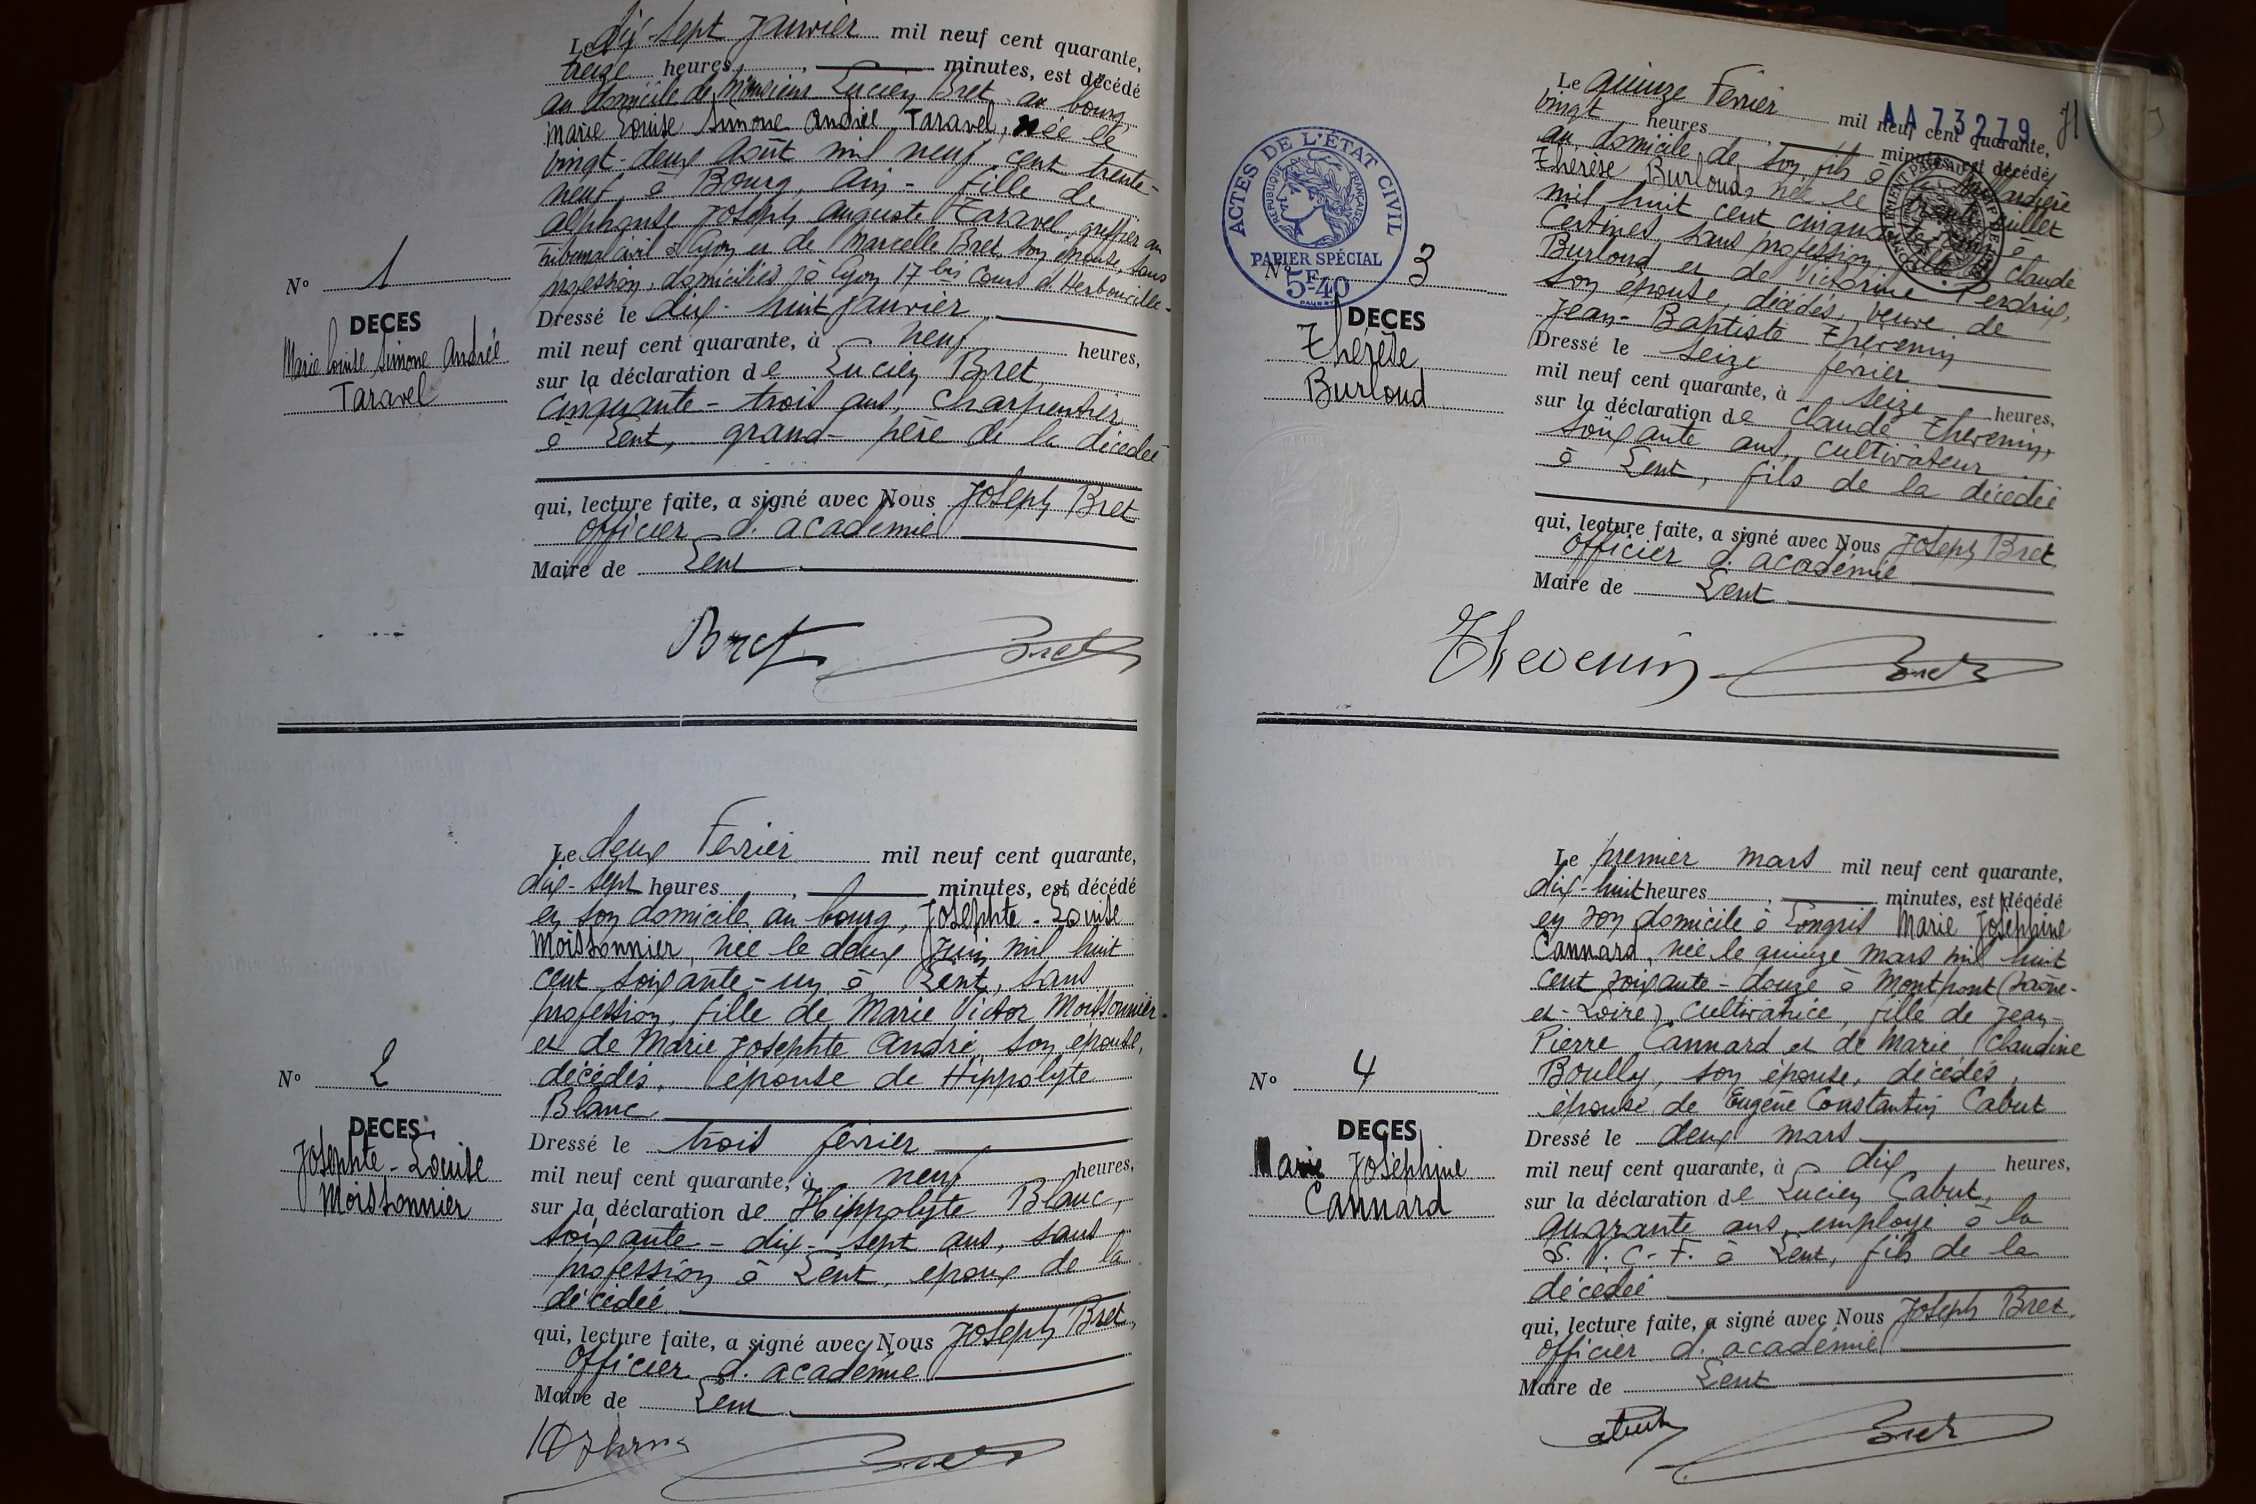 Le dix-sept Janvier mil neuf cent quarante,
treize heures, minutes, est décédé
au domicile de Monsieur Lucien Bret au bourg,
Marie Louise Simone Andrée Taravel, née le
vingt-deux Août mil neuf cent trente-
neuf à Bourg, Ain - fille de
Alphonse Joseph Auguste Taravel, greffier au
Tribunal civil à Lyon et de Marcelle Bret, son épouse, sans
profession, domiciliés à Lyon 17 bis Cours d'Herbouville-
N° 1
DECES
Marie Louise Simone Andrée
Taravel
Dressé le dix-huit janvier
mil neuf cent quarante, à neuf heures,
sur la déclaration de Lucien Bret,
cinquante-trois ans, charpentier
à Lent, grand-père de la décédée
qui, lecture faite, a signé avec Nous Joseph Bret
Officier d'académie
Maire de Lent
Bret Bret
Le deux Février mil neuf cent quarante,
dix-sept heures, minutes, est décédé
en son domicile au bourg, Josephte-Louise
Moissonnier, née le deux Juin mil huit
cent soixante-un à Lent, sans
profession, fille de Marie Victor Moissonnier
et de Marie Josephte André, son épouse,
décédés, épouse de Hippolyte
Blanc
N° 2
DECES
Josephte-Louise
Moissonnier
Dressé le trois février
mil neuf cent quarante, à neuf heures,
sur la déclaration de Hippolyte Blanc,
soixante-dix-sept ans, sans
profession à Lent, époux de la
décédée
qui, lecture faite, a signé avec Nous Joseph Bret,
Officier d'académie
Maire de Lent
Bret
AA 73279 71
Le quinze Février mil neuf cent quarante,
vingt heures minutes, est décédé
au domicile de son fils à
Thérèse Burloud, née le trente juillet
mil huit cent cinquante à
Certines, sans profession, fille de Claude
Burloud et de Victorine Perdrix,
son épouse, décédés, veuve de
Jean-Baptiste Thévenin
ACTES DE L'ÉTAT CIVIL
RÉPUBLIQUE FRANÇAISE
PAPIER SPÉCIAL
5F40
N° 3
DECES
Thérèse
Burloud
Dressé le seize février
mil neuf cent quarante, à seize heures,
sur la déclaration de Claude Thévenin,
soixante ans, cultivateur
à Lent, fils de la décédée
qui, lecture faite, a signé avec Nous Joseph Bret
Officier d'académie
Maire de Lent
Thevenin Bret
Le premier mars mil neuf cent quarante,
dix-huit heures, minutes, est décédé
en son domicile à Longris Marie Joséphine
Cannard, née le quinze mars mil huit
cent soixante-douze à Montpont (Saône-
et-Loire), cultivatrice, fille de Jean-
Pierre Cannard et de Marie Claudine
Boully, son épouse, décédés,
épouse de Eugène Constantin Cabut
N° 4
DECES
Marie Joséphine
Cannard
Dressé le deux mars
mil neuf cent quarante, à dix heures,
sur la déclaration de Lucien Cabut,
quarante ans, employé à la
S.N.C.F. à Lent, fils de la
décédée
qui, lecture faite, a signé avec Nous Joseph Bret,
Officier d'académie
Maire de Lent
Cabut Bret